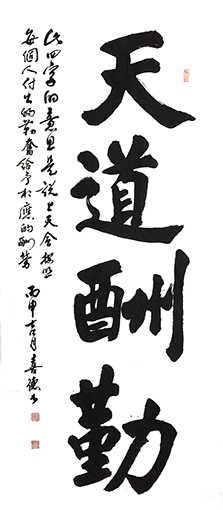 天道酬勤
此四字的意思是説上天会按照
每個人付出的勤奮给予相應的酬劳
丙申吉月喜德书